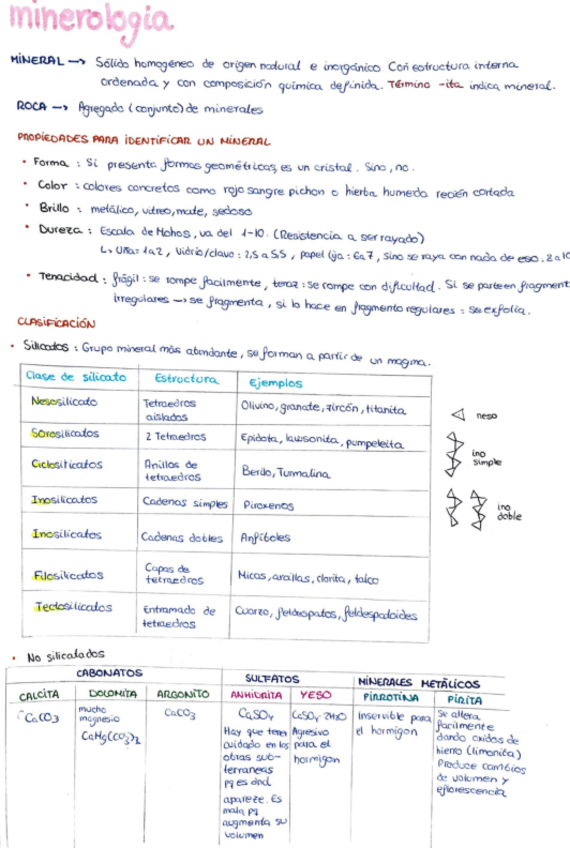 minerologia
MINERAL → Sólido homogéneo de origen natural e inorgánico Con estructura interna
ordenada y con composición química definida. Término -ita indica mineral.
ROCA → Agregado (conjunto) de minerales
PROPIEDADES PARA IDENTIFICAR UN MINERAL
• Forma : Si presenta formas geométricas, es un cristal. Sino, no.
• Color : colores concretos como rojo sangre pichon o hierba humeda recién cortada
• Brillo : metálico, vitreo, mate, sedoso
• Dureza : Escala de Mohos, va del 1-10. (Resistencia a ser rayado)
↳ Uña: 1 a 2, Vidrio/clavo : 2,5 a 5.5, papel lija : 6 a 7, sino se raya con nada de eso. 8 a 10
• Tenacidad : frágil : se rompe facilmente, tenaz : se rompe con dificultad. Si se parte en fragment
irregulares → se fragmenta, si lo hace en fragmento regulares : se exfolia.
CLASIFICACIÓN
• Silicatos : Grupo mineral más abundante, se forman a partir de un magma.
Clase de silicato Estructura Ejemplos
Nesosilicato Tetraedros Olivino, granate, zircón, titanita
aislados
Sorosilicatos 2 Tetraedros Epidota, lawsonita, pumpeleita
Ciclosilicatos Anillos de Berilo, Turmalina
tetraedros
Inosilicatos Cadenas simples Piroxenos
Inosilicatos Cadenas dobles Anfiboles
Filosilicatos Capas de Micas, arcillas, clorita, talco
tetraedros
Tectosilicatos Entramado de Cuarzo, feldespatos, feldespatoides
tetraedros
neso
ino
simple
ino
doble
• No silicatados
CABONATOS SULFATOS MINERALES METÁLICOS
CALCITA DOLOMITA ARGONITO ANHIDRITA YESO PIRROTINA PIRITA
CaCO3 mucho CaCO3 CaSO4 CaSO4 2H2O Inservible para Se altera
magnesio el hormigon facilmente
CaMg(CO3)2 dando oxidos de
Hay que tener Agresivo hierro (limonita)
cuidado en las para el Produce cambios
obras sub- hormigon de volumen y
terraneas eflorescencia
pq es dnd
aparece. Es
mala pq
augmenta su
volumen